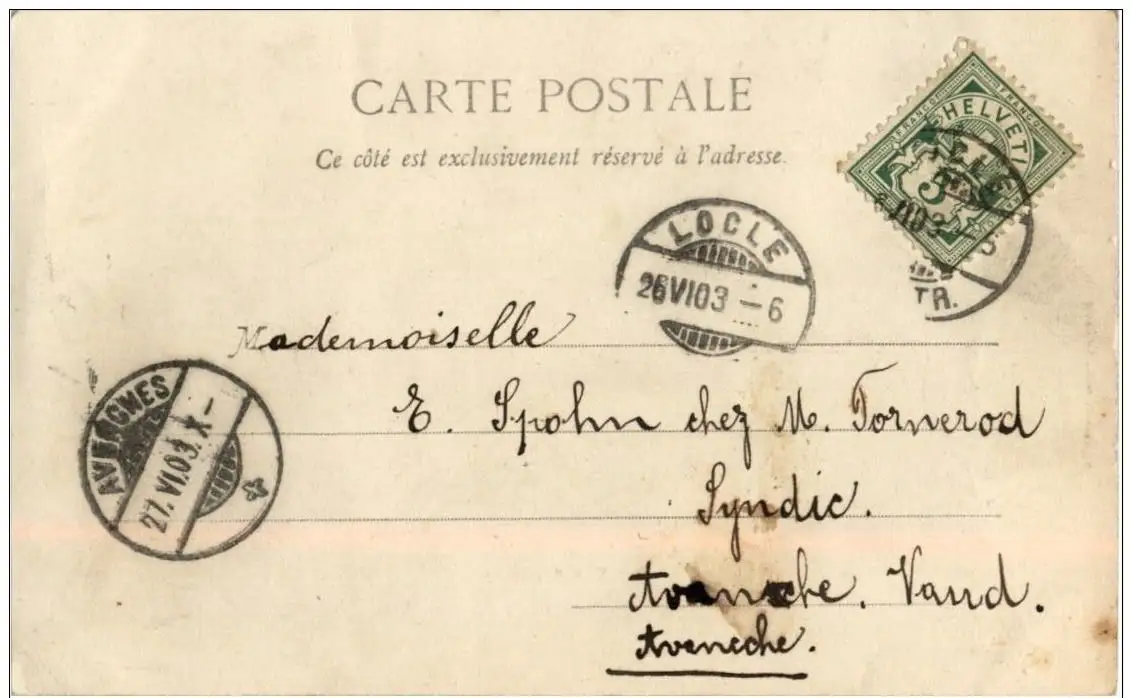 CARTE POSTALE
Ce côté est exclusivement réservé à l'adresse.
FRANCO FRANCO
HELVETI
5
TR.
LOCLE
26 VI 03 – 6
Mademoiselle
E. Spohn chez M. Tornerod
Syndic.
Avenche. Vaud.
Aveneche.
AVENCHES
27. VI. 03. X –